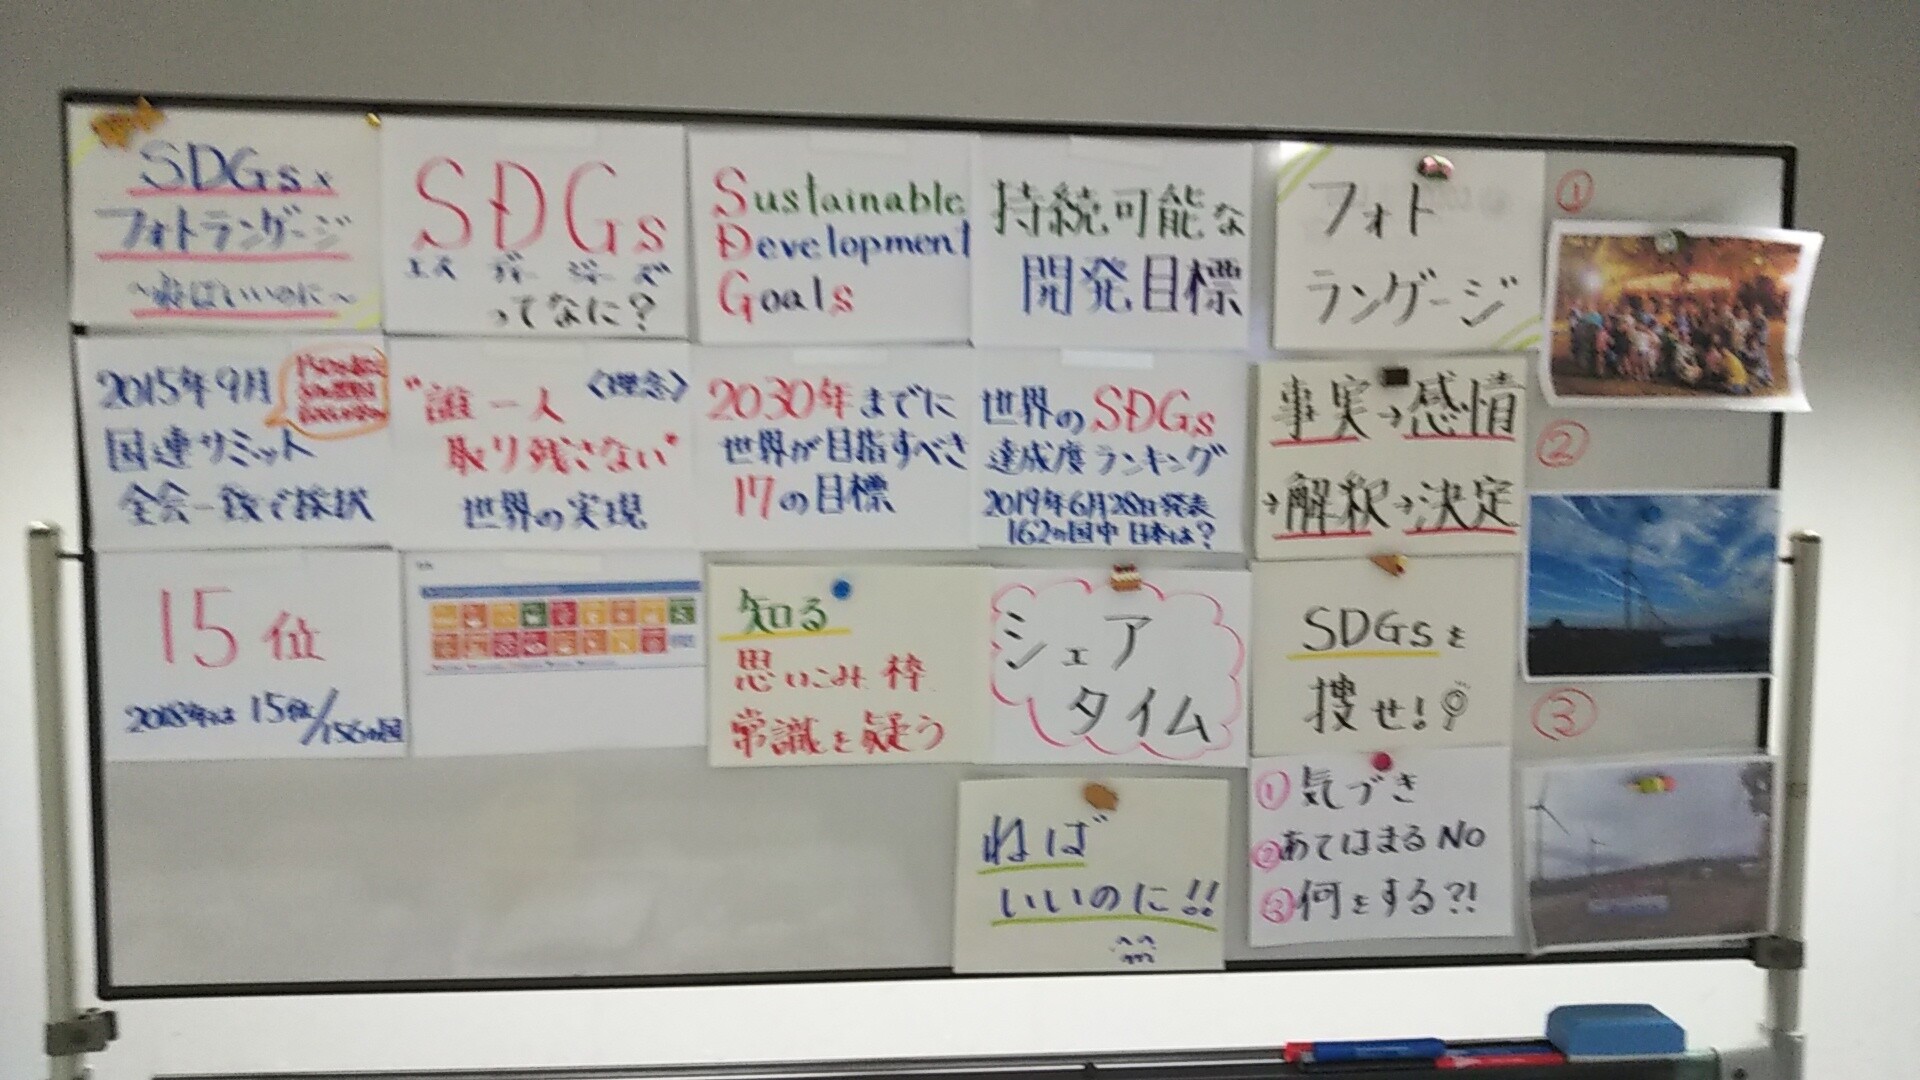 SDGs×
フォトランゲージ
〜ねばいいのに〜
SDGs
エス ディー ジーズ
ってなに?
Sustainable
Development
Goals
持続可能な
開発目標
フォト
ランゲージ
①
2015年9月
国連サミット
全会一致で採択
〈理念〉
"誰一人
取り残さない"
世界の実現
2030年までに
世界が目指すべき
17の目標
世界のSDGs
達成度ランキング
2019年6月28日発表
162ヵ国中 日本は?
事実→感情
→解釈→決定
②
15位
2018年は 15位/156ヵ国
知る
思いこみ 枠
常識を疑う
シェア
タイム
SDGsを
捜せ!
③
ねば
いいのに!!
①気づき
②あてはまるNO
③何をする?!